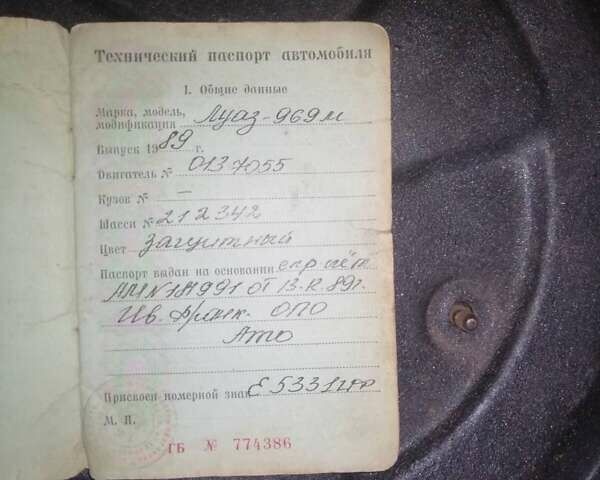 Технический паспорт автомобиля
I. Общие данные
Марка, модель,
модификация Луаз-969м
Выпуск 1989 г.
Двигатель № 0137055
Кузов № —
Шасси № 212342
Цвет Защитный
Паспорт выдан на основании спр счёт
АМ№181991 ОТ 13. 89г.
Ив. Франк. ОПО
Ато
Присвоен номерной знак Е 5331
М. П.
ГБ № 774386